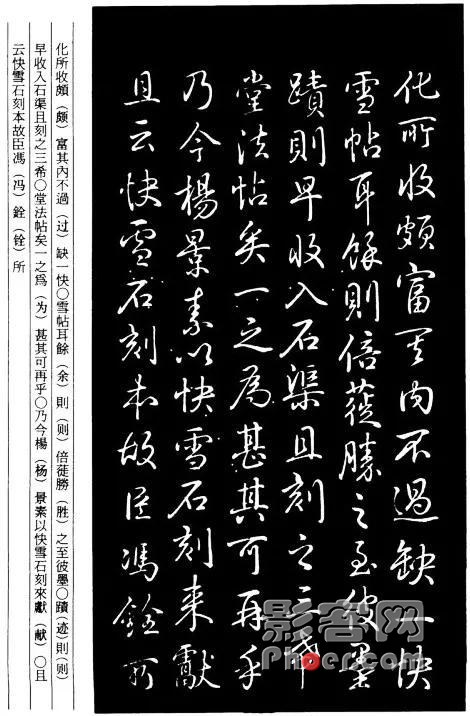 化所收頗富其内不過缺一快
雪帖耳餘則倍蓰勝之至彼墨
蹟則早收入石渠且刻之三希
堂法帖矣一之為甚其可再乎
乃今楊景素以快雪石刻来獻
且云快雪石刻本故臣馮銓所
化所收頗（颇）富其內不過（过）缺一快〇雪帖耳餘（余）則（则）倍蓰勝（胜）之至彼墨〇蹟（迹）則（则）
早收入石渠且刻之三希〇堂法帖矣一之爲（为）甚其可再乎〇乃今楊（杨）景素以快雪石刻來獻（献）〇且
云快雪石刻本故臣馮（冯）銓（铨）所
影客网
Phoer.com